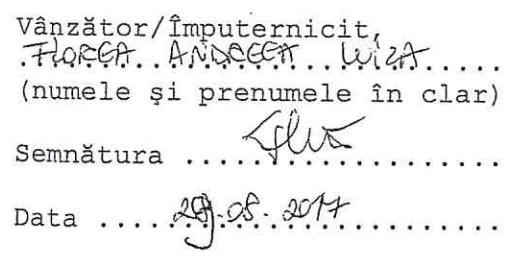 Vânzător/Împuternicit,
FLOREA ANDREEA LUIZA
(numele şi prenumele în clar)
Semnătura ....................
Data ....08.2017....